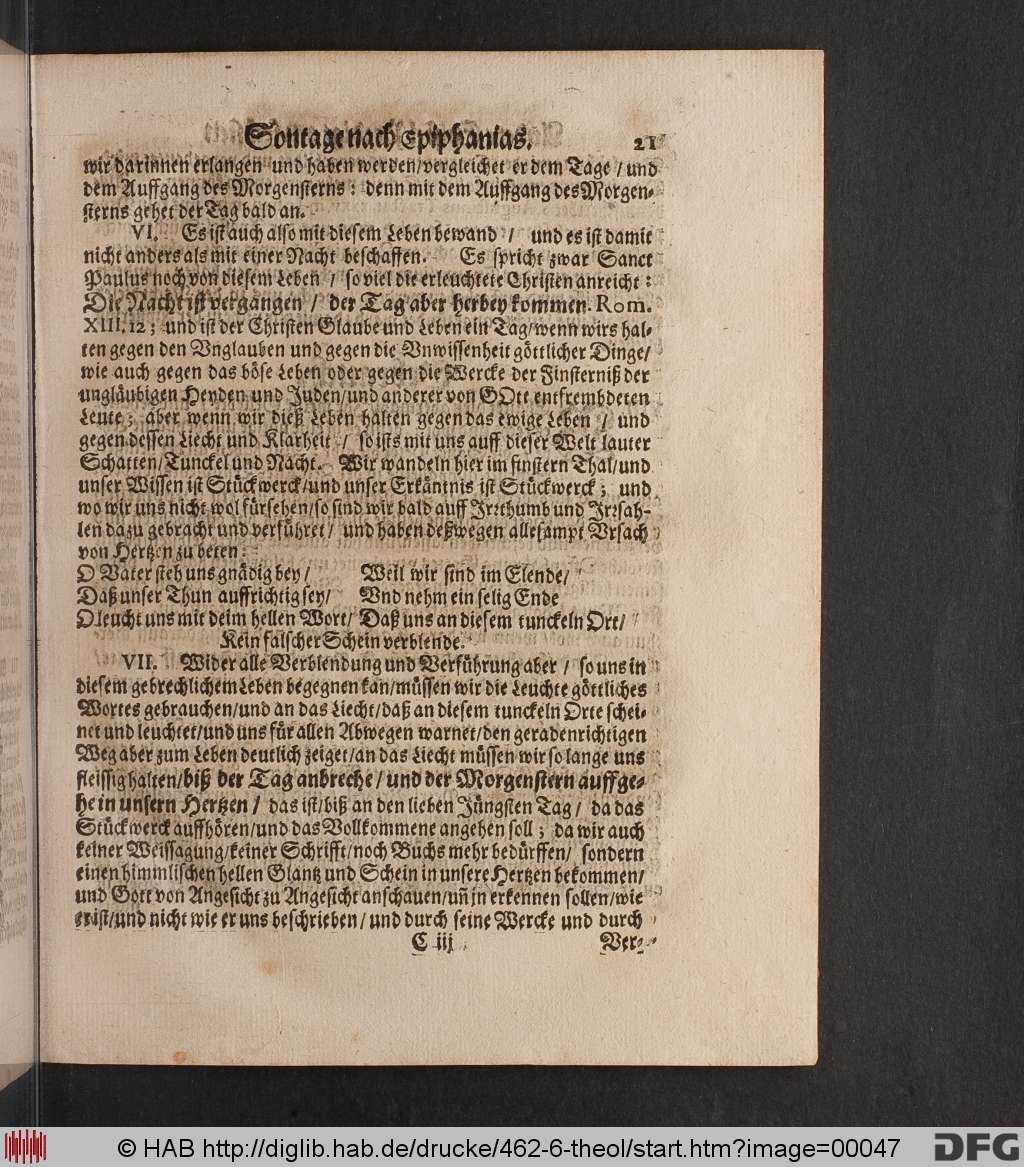 Sontage nach Epiphanias. 21
wir darinnen erlangen und haben werden/vergleichet er dem Tage / und
dem Auffgang des Morgensterns: denn mit dem Auffgang des Morgen-
sterns gehet der Tag bald an.
VI. Es ist auch also mit diesem Leben bewand / und es ist damit
nicht anders als mit einer Nacht beschaffen. Es spricht zwar Sanct
Paulus noch von diesem Leben / so viel die erleuchtete Christen anreicht:
Die Nacht ist vergangen / der Tag aber herbey kommen. Rom.
XIII. 12; und ist der Christen Glaube und Leben ein Tag/wenn wirs hal-
ten gegen den Vnglauben und gegen die Vnwissenheit göttlicher Dinge/
wie auch gegen das böse Leben oder gegen die Wercke der Finsterniß der
ungläubigen Heyden und Juden/und anderer von GOtt entfrembdeten
Leute; aber wenn wir dieß Leben halten gegen das ewige Leben / und
gegen dessen Liecht und Klarheit / so ists mit uns auff dieser Welt lauter
Schatten/Tunckel und Nacht. Wir wandeln hier im finstern Thal/und
unser Wissen ist Stückwerck/und unser Erkäntnis ist Stückwerck; und
wo wir uns nicht wol fürsehen/so sind wir bald auff Jrrthumb und Jrrsah-
len dazu gebracht und verführet/ und haben deßwegen allesampt Vrsach
von Hertzen zu beten:
O Vater steh uns gnädig bey/ Weil wir sind im Elende/
Daß unser Thun auffrichtig sey/ Vnd nehm ein selig Ende
O leucht uns mit deim hellen Wort/ Daß uns an diesem tunckeln Ort/
Kein falscher Schein verblende.
VII. Wider alle Verblendung und Verführung aber / so uns in
diesem gebrechlichem Leben begegnen kan/müssen wir die Leuchte göttliches
Wortes gebrauchen/und an das Liecht/daß an diesem tunckeln Orte schei-
net und leuchtet/und uns für allen Abwegen warnet/den geradenrichtigen
Weg aber zum Leben deutlich zeiget/an das Liecht müssen wir so lange uns
fleissig halten/biß der Tag anbreche/ und der Morgenstern auffge-
he in unsern Hertzen/ das ist/biß an den lieben Jüngsten Tag/ da das
Stückwerck auffhören/und das Vollkommene angehen soll; da wir auch
keiner Weissagung/keiner Schrifft/noch Buchs mehr bedürffen/ sondern
einen himmlischen hellen Glantz und Schein in unsere Hertzen bekommen/
und Gott von Angesicht zu Angesicht anschauen/uñ jn erkennen sollen/wie
er ist/und nicht wie er uns beschrieben/ und durch seine Wercke und durch
C iij Ver-
© HAB http://diglib.hab.de/drucke/462-6-theol/start.htm?image=00047 DFG